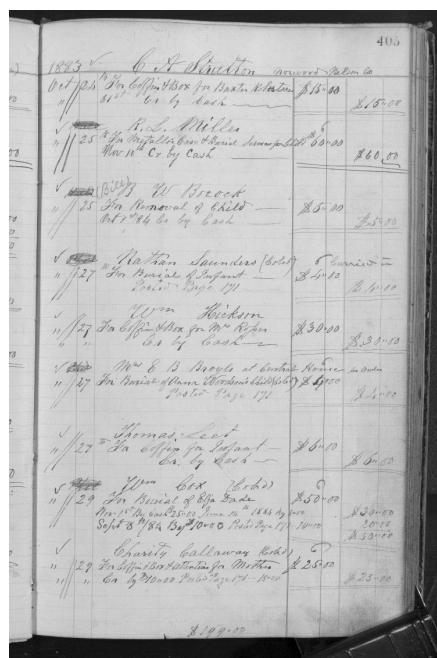 405
1883 C H Stratton Norwood Nelson Co
Oct 24 To Coffin & Box for Baxter $15.00
31st Cr by Cash $15.00
R. L. Miller
25 To Metallic Case & Burial Services for Child $60.00
Nov 1st Cr by Cash $60.00
(Bill) W Bocock
25 For Removal of Child $5.00
Oct 1st 84 Cr by Cash $5.00
Nathan Saunders (Cold) Carried in
27 To Burial of Infant $4.00
Posted Page 171 $4.00
Wm Hickson
27 To Coffin & Box for Mrs $30.00
Cr by Cash $30.00
Mrs E B Broyle at Central House
27 For Burial of Child (Cold) $4.00
Posted Page 171 $4.00
Thomas Leet
27 To Coffin for Infant $6.00
Cr. by Cash $6.00
Wm Cox (Cold)
29 For Burial of Eliza Dade $50.00
Nov 1st By Cash 25.00 June 14th 1884 by 5.00 $30.00
Sept 8th/84 By 10.00 Posted Page 171 10.00 20.00
$50.00
Charity Callaway (Cold)
29 For Coffin & Box & attention for Mother $25.00
Cr by 10.00 Posted Page 171 15.00 $25.00
$199.00